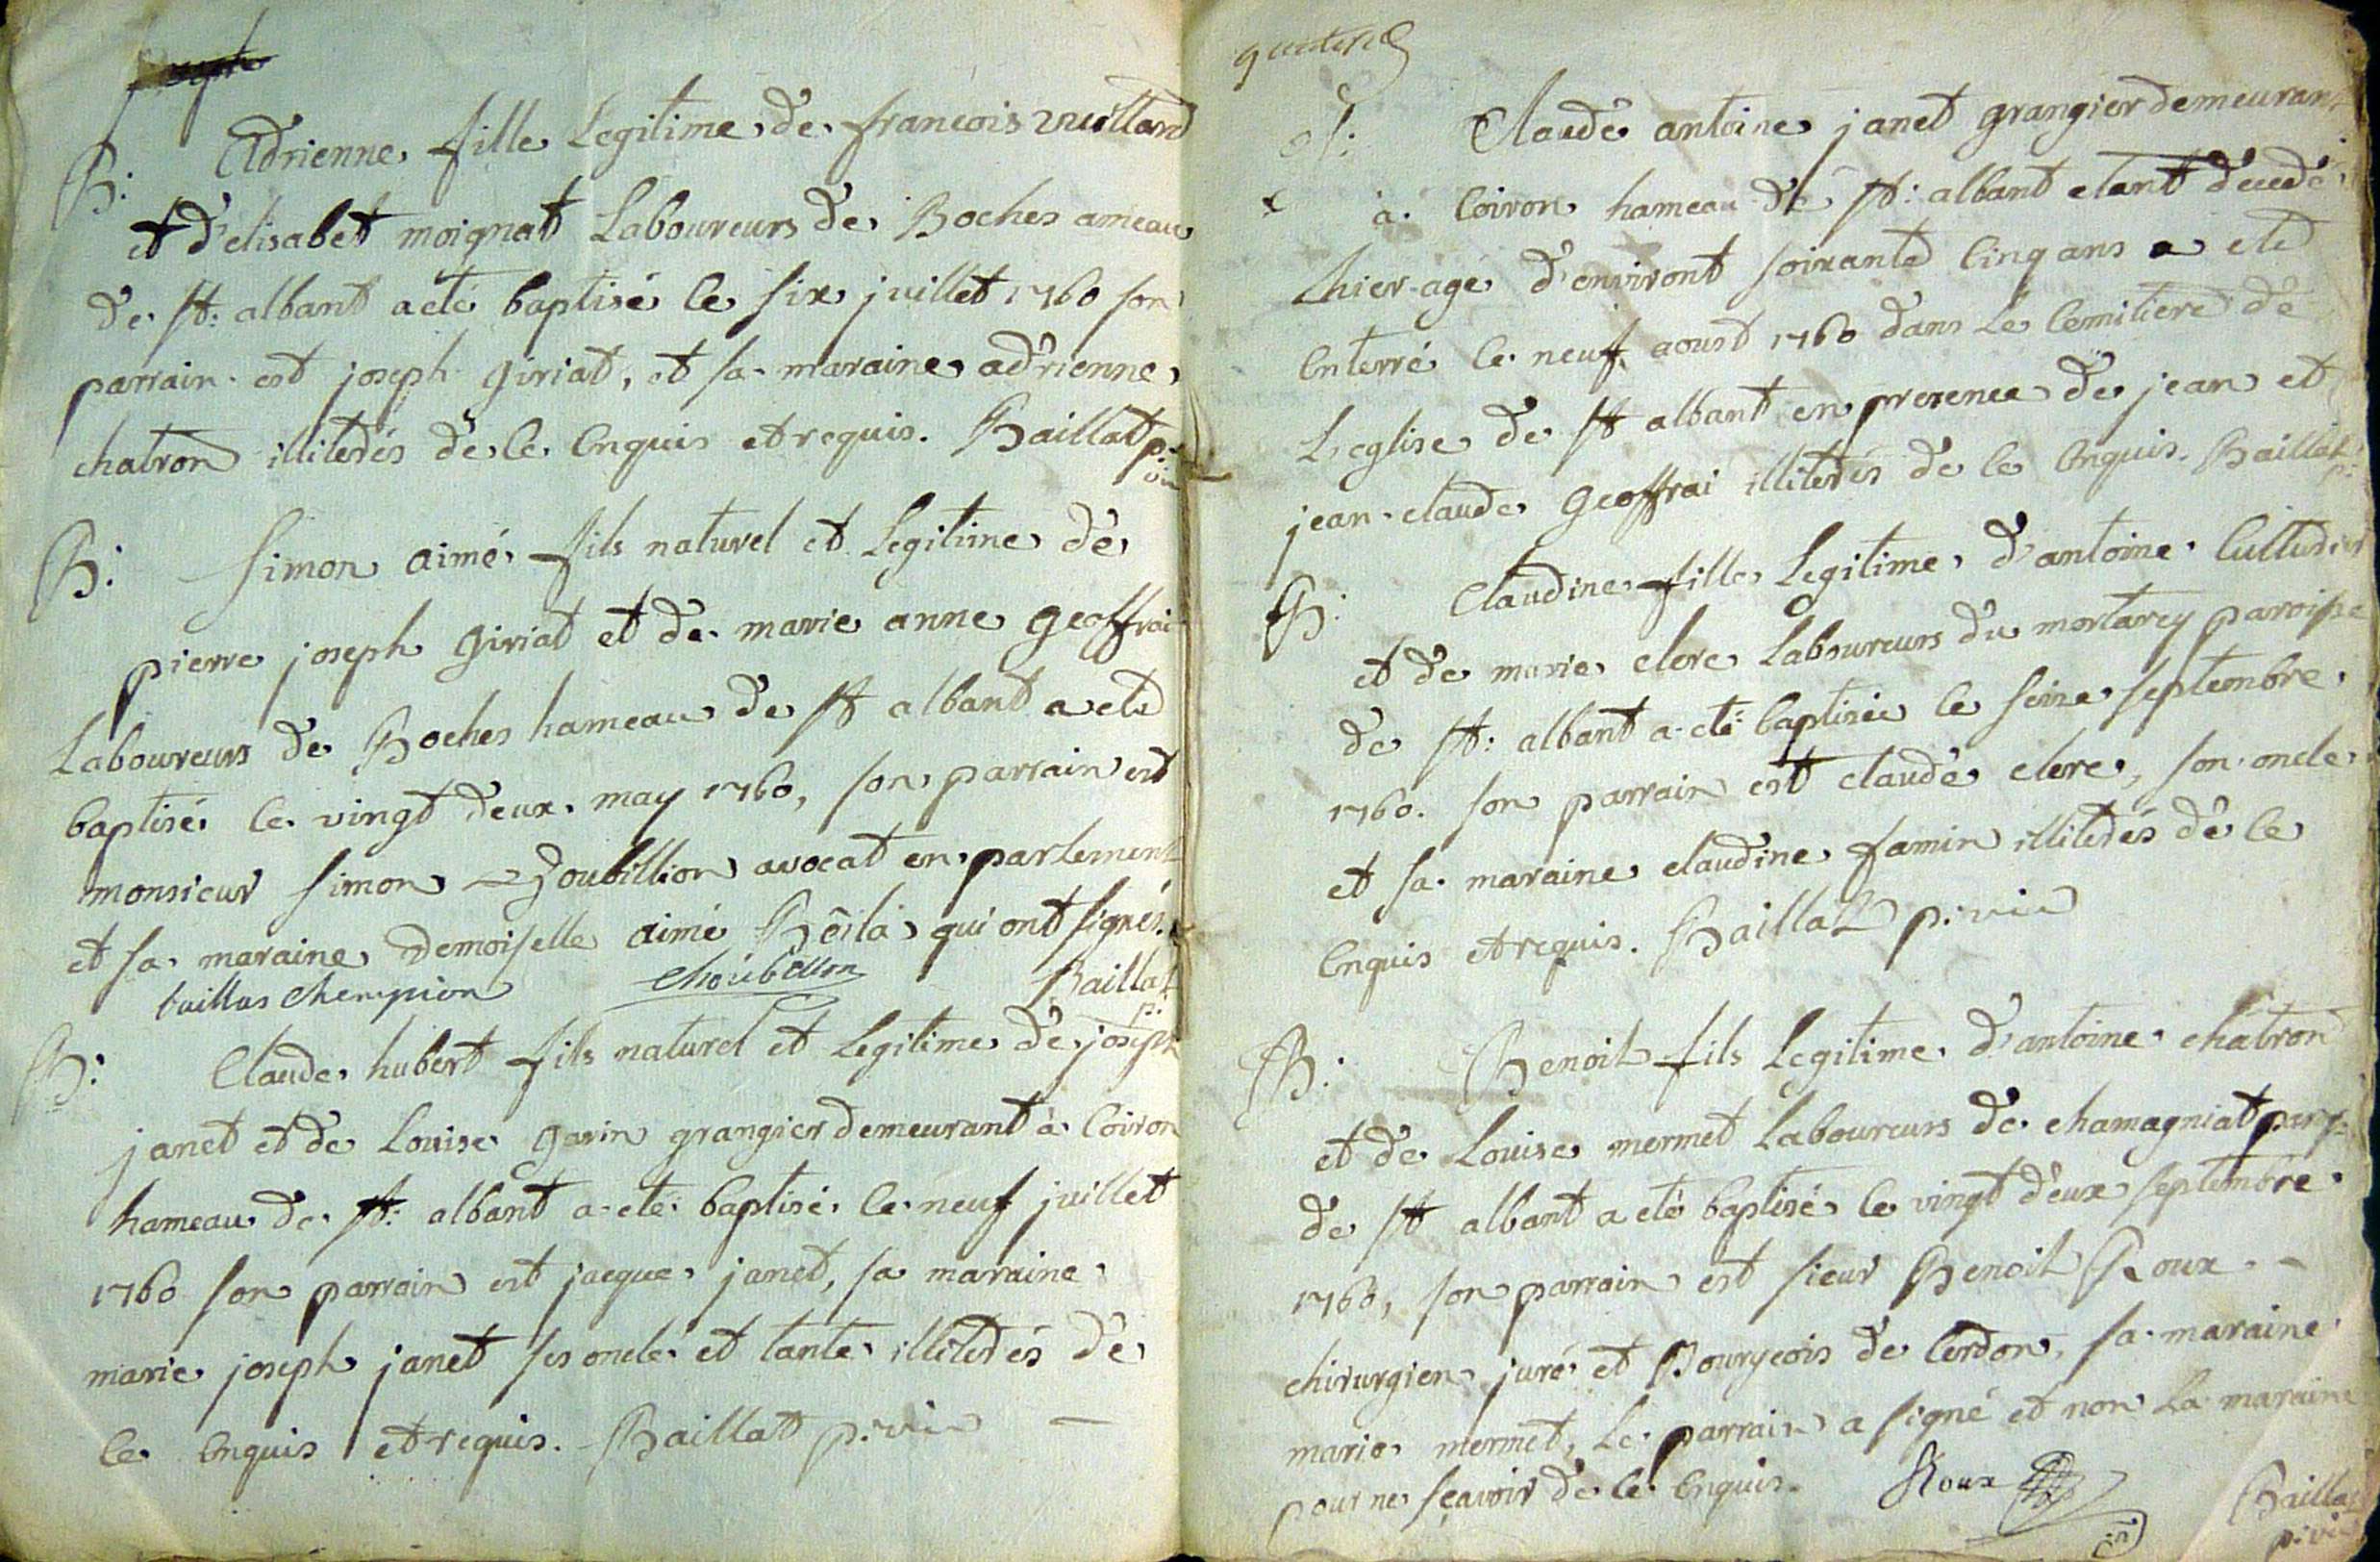 B: Adrienne fille Legitime de francois vuilland
et d'elisabet moignat Laboureurs de Boches ameau
de st: albant a eté baptisé le six juillet 1760 son
parrain est joseph giriat, et sa maraine adrienne
chatron illiterés de ce Enquis et requis. Baillat p: vic
B: Simon aimé fils naturel et Legitime de
pierre joseph giriat et de marie anne geoffrai
Laboureurs de Boches hameau de st albant a eté
baptisé le vingt deux may 1760, son parrain est
monsieur simon choubillion avocat en parlement
et sa maraine Demoiselle aimé qui ont signés.
Champion Choubillon Baillat p:
B: Claude hubert fils naturel et Legitime de joseph
janet et de Louise garin grangier demeurant à Coiron
hameau de st: albant a eté baptisé le neuf juillet
1760 son parrain est jacque janet, sa maraine
marie joseph janet ses oncle et tante illiterés de
ce Enquis et requis. Baillat p: vic
Claude antoine janet grangier demeurant
a Coiron hameau de st: albant etant decedé
hier agé d'environt soixante Cinq ans a eté
Enterré le neuf aoust 1760 dans Le Cemitiere de
L'eglise de st albant en presence de jean et
jean claude geoffrai illiterés de ce Enquis. Baillat p:
B: Claudine fille Legitime d'antoine
et de marie clerc Laboureurs du mortarey paroisse
de st: albant a eté baptisée le seize septembre
1760. son parrain est claude clerc, son oncle
et sa maraine claudine famin illiterés de ce
Enquis et requis. Baillat p: vic
B: Benoit fils Legitime d'antoine chatron
et de Louise mermet Laboureurs de chamagniat parss:
de st albant a eté baptisé le vingt deux septembre
1760, son parrain est sieur Benoit Roux
chirurgien juré et Bourgeois de Cerdon, sa maraine
marie mermet, Le parrain a signé et non La maraine
pour ne sçavoir de ce Enquis. Roux Baillat
p: vic